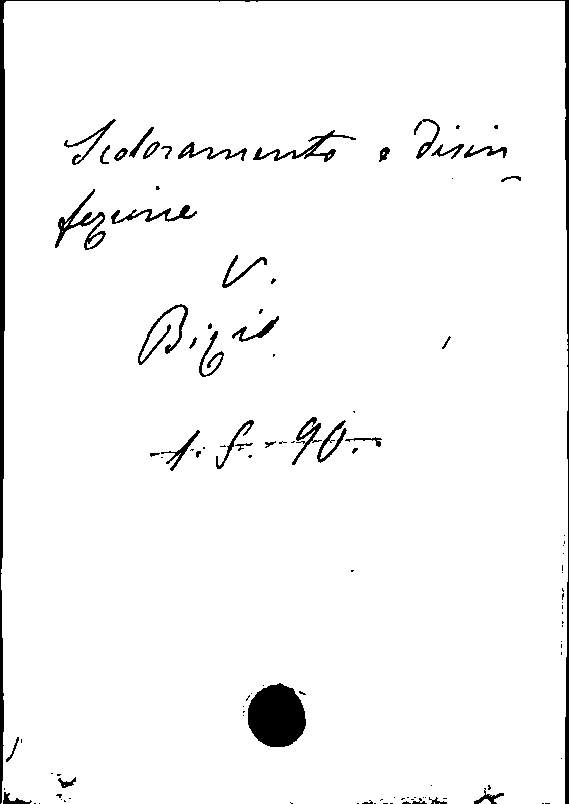 Scoloramento e disin
fezione
V.
Bizio
1. S. 90.